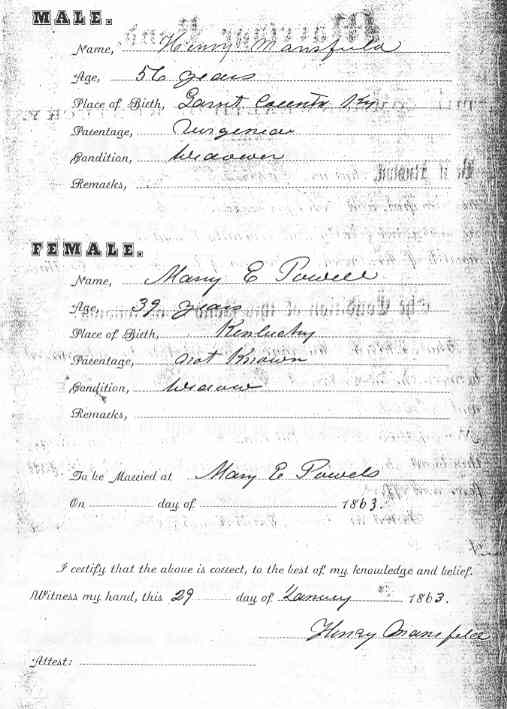 MALE.
Name, Henry Mansfield
Age, 56 years
Place of Birth, County Ky
Parentage, Virginia
Condition, Widower
Remarks,
FEMALE.
Name, Mary E Powell
Age 39 years
Place of Birth, Kentucky
Parentage, not Known
Condition, Widow
Remarks,
To be Married at Mary E Powels
On day of 1863.
I certify that the above is correct, to the best of my knowledge and belief.
Witness my hand, this 29 day of January 1863.
Henry Mansfield
Attest: